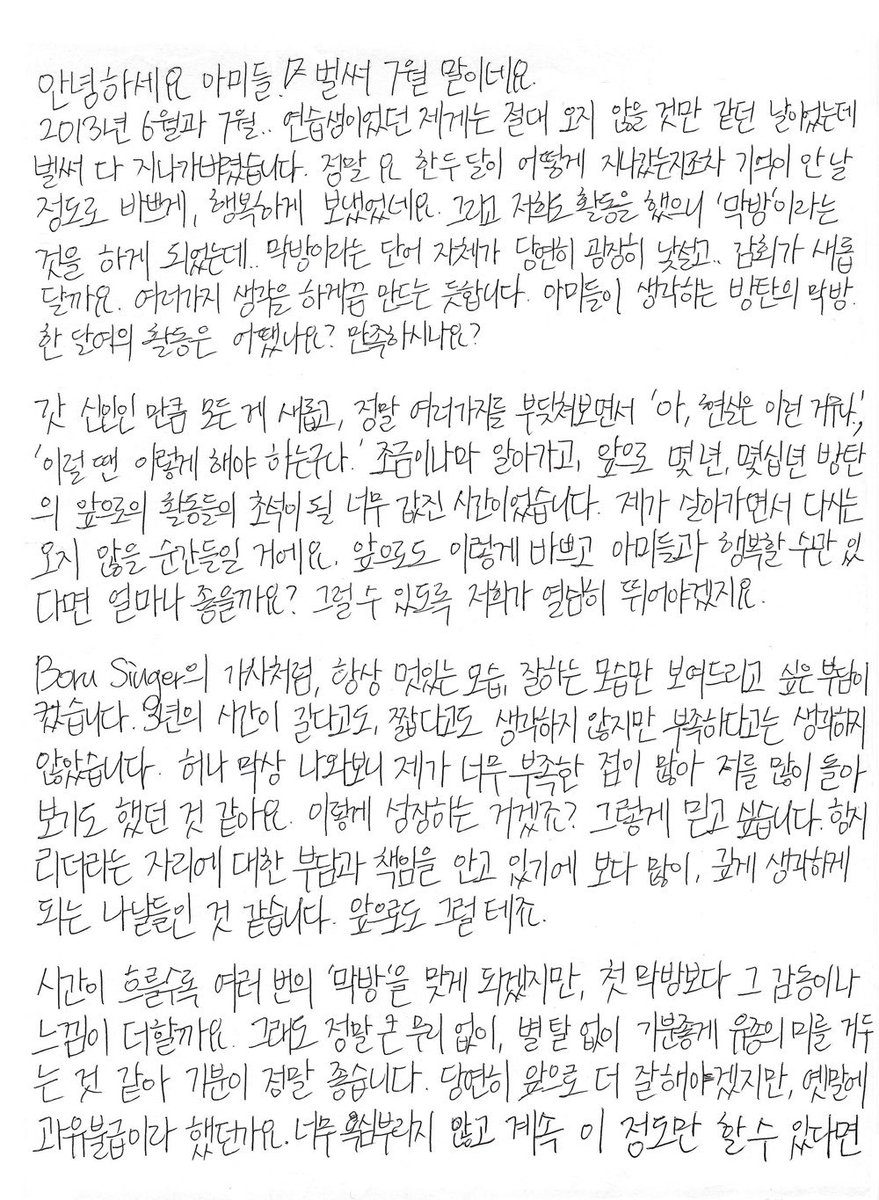 안녕하세요 아미들! 벌써 7월 말이네요.
2013년 6월과 7월.. 연습생이었던 제게는 절대 오지 않을 것만 같던 날이었는데
벌써 다 지나가버렸습니다. 정말 요 한두달이 어떻게 지나갔는지조차 기억이 안 날
정도로 바쁘게, 행복하게 보냈었네요. 그리고 저희도 활동을 했으니 '막방'이라는
것을 하게 되었는데.. 막방이라는 단어 자체가 당연히 굉장히 낯설고.. 감회가 새롭
달까요. 여러가지 생각을 하게끔 만드는 듯합니다. 아미들이 생각하는 방탄의 막방.
한 달여의 활동은 어땠나요? 만족하시나요?
갓 신인인 만큼 모든 게 새롭고, 정말 여러가지들 부딪쳐보면서 '아, 현실은 이런 거구나.',
'이럴 땐 이렇게 해야 하는구나.' 조금이나마 알아가고, 앞으로 몇 년, 몇십년 방탄
의 앞으로의 활동들의 초석이 될 너무 값진 시간이었습니다. 제가 살아가면서 다시는
오지 않을 순간들일 거에요. 앞으로도 이렇게 바쁘고 아미들과 행복할 수만 있
다면 얼마나 좋을까요? 그럴 수 있도록 저희가 열심히 뛰어야겠지요.
Born Singer의 가사처럼, 항상 멋있는 모습, 잘하는 모습만 보여드리고 싶은 부담이
컸습니다. 3년의 시간이 길다고도, 짧다고도 생각하지 않지만 부족하다고는 생각하지
않았습니다. 허나 막상 나와보니 제가 너무 부족한 점이 많아 저를 많이 돌아
보기도 했던 것 같아요. 이렇게 성장하는 거겠죠? 그렇게 믿고 싶습니다. 항시
리더라는 자리에 대한 부담과 책임을 안고 있기에 보다 많이, 깊게 생각하게
되는 나날들인 것 같습니다. 앞으로도 그럴 테죠.
시간이 흐를수록 여러 번의 '막방'을 맞게 되겠지만, 첫 막방보다 그 감동이나
느낌이 더할까요. 그래도 정말 큰 무리 없이, 별 탈 없이 기분좋게 유종의 미를 거두
는 것 같아 기분이 정말 좋습니다. 당연히 앞으로 더 잘해야겠지만, 옛말에
과유불급이라 했던가요. 너무 욕심부리지 않고 계속 이 정도만 할 수 있다면